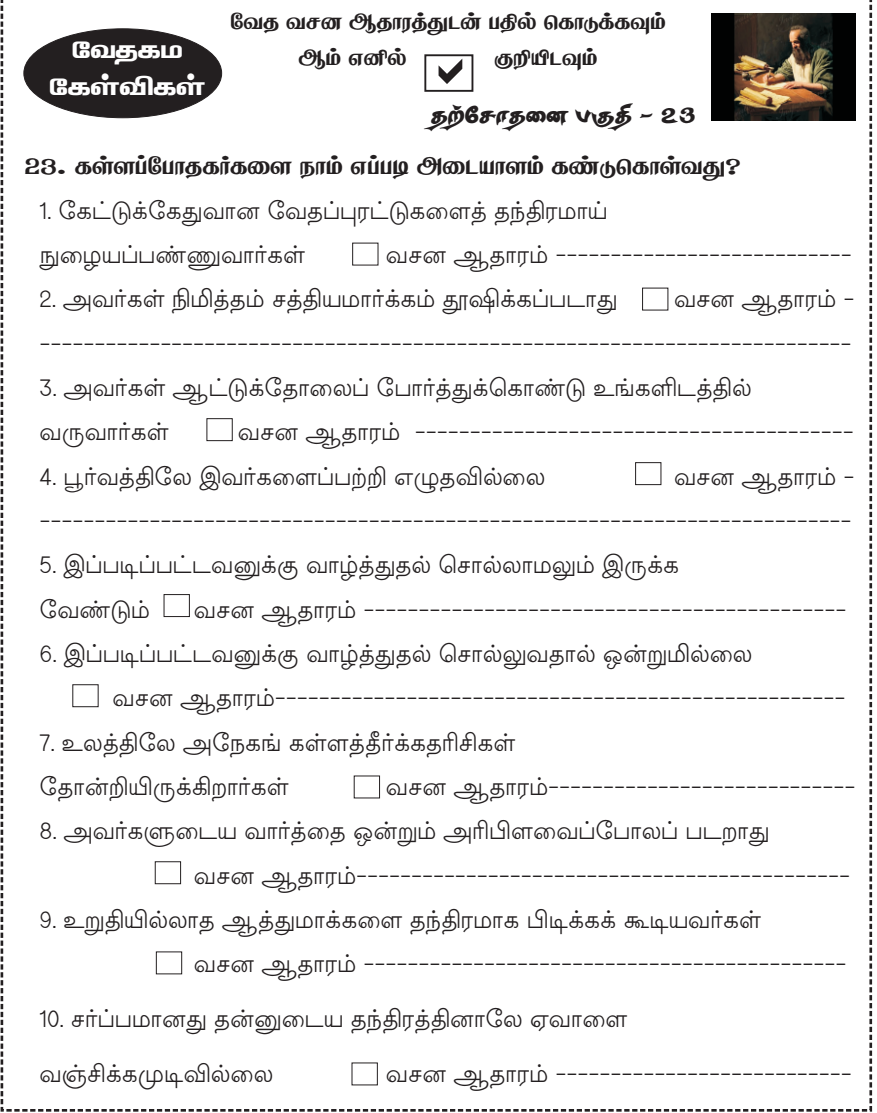 வேத வசன ஆதாரத்துடன் பதில் கொடுக்கவும்
வேதகம
கேள்விகள்
ஆம் எனில் ✔ குறியிடவும்
தற்சோதனை பகுதி - 23
23. கள்ளப்போதகர்களை நாம் எப்படி அடையாளம் கண்டுகொள்வது?
1. கேட்டுக்கேதுவான வேதப்புரட்டுகளைத் தந்திரமாய்
நுழையப்பண்ணுவார்கள் ☐ வசன ஆதாரம் ---------------------------
2. அவர்கள் நிமித்தம் சத்தியமார்க்கம் தூஷிக்கப்படாது ☐ வசன ஆதாரம் -
--------------------------------------------------------------------------
3. அவர்கள் ஆட்டுக்தோலைப் போர்த்துக்கொண்டு உங்களிடத்தில்
வருவார்கள் ☐ வசன ஆதாரம் ----------------------------------------
4. பூர்வத்திலே இவர்களைப்பற்றி எழுதவில்லை ☐ வசன ஆதாரம் -
--------------------------------------------------------------------------
5. இப்படிப்பட்டவனுக்கு வாழ்த்துதல் சொல்லாமலும் இருக்க
வேண்டும் ☐ வசன ஆதாரம் --------------------------------------------
6. இப்படிப்பட்டவனுக்கு வாழ்த்துதல் சொல்லுவதால் ஒன்றுமில்லை
☐ வசன ஆதாரம்----------------------------------------------------
7. உலத்திலே அநேகங் கள்ளத்தீர்க்கதரிசிகள்
தோன்றியிருக்கிறார்கள் ☐ வசன ஆதாரம்----------------------------
8. அவர்களுடைய வார்த்தை ஒன்றும் அரிபிளவைப்போலப் படறாது
☐ வசன ஆதாரம்---------------------------------------------
9. உறுதியில்லாத ஆத்துமாக்களை தந்திரமாக பிடிக்கக் கூடியவர்கள்
☐ வசன ஆதாரம் --------------------------------------------
10. சர்ப்பமானது தன்னுடைய தந்திரத்தினாலே ஏவாளை
வஞ்சிக்கமுடிவில்லை ☐ வசன ஆதாரம் ---------------------------